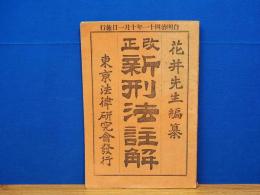 自明治四十一年十月一日施行
花井先生編纂
改正
新刑法註解
東京法律研究會發行